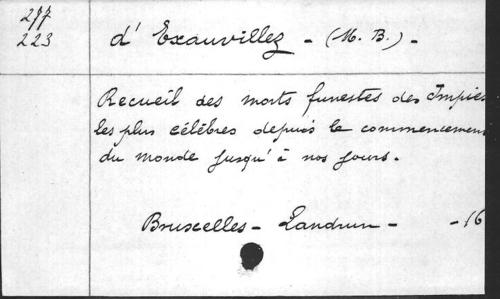 277
223
d'Exauvillez - (M. B.) -
Recueil des morts funestes des Impies
les plus célèbres depuis le commencement
du monde jusqu'à nos jours.
Bruxelles - Landrun - - 16